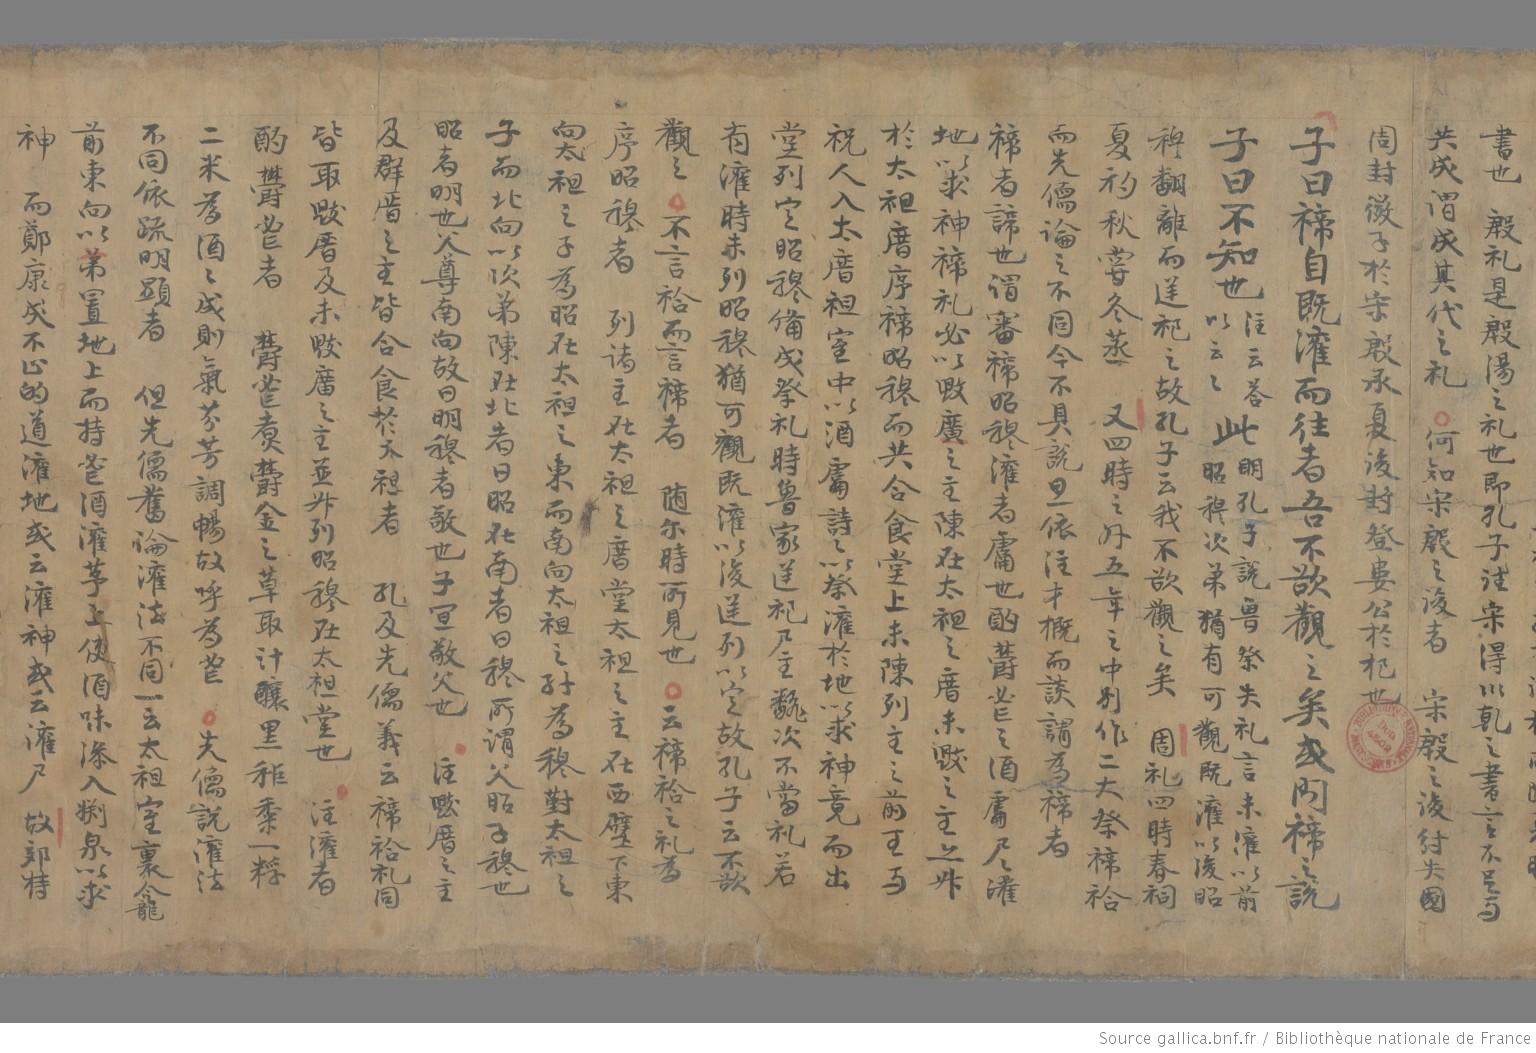 書也　殷礼是殷湯之礼也即孔子往宋得以乹之書言不足与
共成謂成其代之礼　何知宋殷之後者　宋殷之後紂失國
周封微子於宋殷承夏後封登婁公於杞也
子曰禘自既灌而往者吾不欲觀之矣或問禘之說
子曰不知也注云荅以云之此明孔子說魯祭失礼言未灌以前昭穆次第猶有可觀既灌以後昭
穆翻離而逆祀之故孔子云我不欲觀之矣　周礼四時春祠
夏礿秋嘗冬蒸　又四時之外五年之中別作二大祭禘祫
而先儒論之不同今不具說且依注才概而談謂為禘者
禘者諦也謂審禘昭穆灌者鬳也酌欝鬯之酒鬳尸灌
地以求神禘礼必以毀廣之主陳在太祖之庿未毀之主亦升
於太祖庿序禘昭穆而共合食堂上未陳列主之前王与
祝人入太庿祖室中以酒鬳詩之以祭灌於地以求神竟而出
堂列定昭穆備成祭礼時魯家逆祀乃主飜次不當礼若
有灌時未列昭穆猶可觀既灌以後逆列以定故孔子云不欲
觀之　不言祫而言禘者　随尔時所見也　云禘祫之礼為
序昭穆者　列諸主在太祖之庿堂太祖之主在西壁下東
向太祖之子為昭在太祖之東而南向太祖之孫為穆對太祖之
子而北向以次弟陳在北者曰昭在南者曰穆所謂父昭子穆也
昭者明也父尊南向故曰明穆者敬也子宜敬父也　注毀庿之主
及群庿之主皆合食於太祖者　孔及先儒義云禘祫礼同
皆取毀庿及未毀廣之主並升列昭穆在太祖堂也　注灌者
酌欝鬯者　欝鬯煑欝金之草取汁釀黑秬黍一稃
二米為酒之成則氣芬芳調暢故呼為鬯　先儒說灌法
不同依疏明顯者　但先儒舊論灌法不同一云太祖室裏龕
前東向以弟置地上而持鬯酒灌茅上使酒味滲入渕泉以求
神　而鄭康成不正的道灌地或云灌神或云灌尸　故郊特